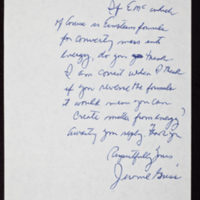 If EMC² which
of course is Einsteins formula
for converting mass into
energy, do you think
I am correct when I think
if you reverse the formula
it would mean you can
create matter from energy?
Awaiting your reply Thank you
Respectfully Yours
Jerome